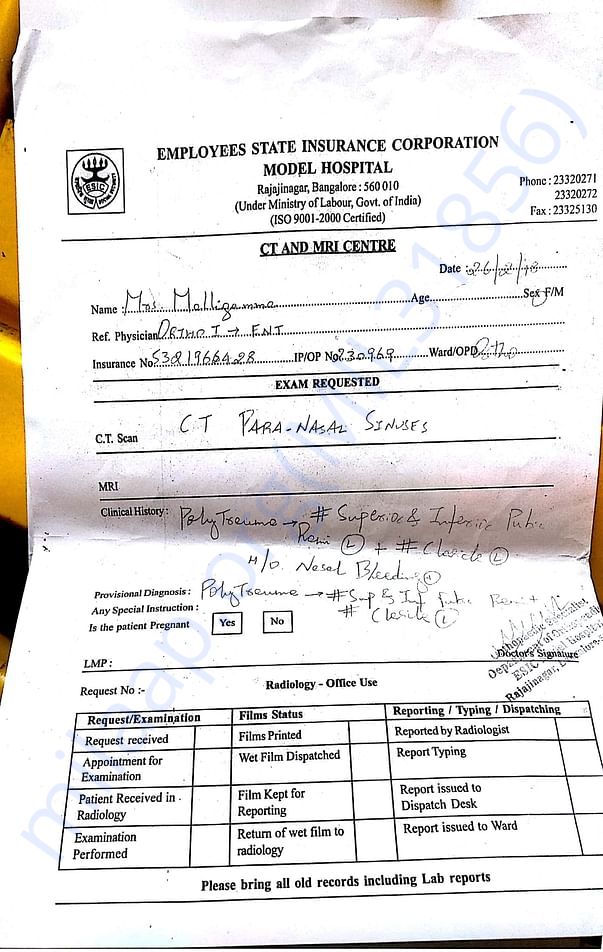 EMPLOYEES STATE INSURANCE CORPORATION
MODEL HOSPITAL
Rajajinagar, Bangalore : 560 010
(Under Ministry of Labour, Govt. of India)
(ISO 9001-2000 Certified)
Phone : 23320271
23320272
Fax : 23325130
ESIC
CT AND MRI CENTRE
Date :
Name : Mrs Malligamma Age Sex F/M
Ref. Physician ORTHO I → ENT
Insurance No. 5381966428 IP/OP No. 230969 Ward/OPD Ortho
EXAM REQUESTED
C.T. Scan CT PARA-NASAL SINUSES
MRI
Clinical History : PolyTrauma → # Superior & Inferior Pubic
Rami (L) + # Clavicle (L)
H/O. Nasal Bleeding
Provisional Diagnosis : PolyTrauma → # Sup & Inf Pubic Rami +
# Clavicle (L)
Any Special Instruction :
Is the patient Pregnant Yes No
Doctor's Signature
LMP :
Request No :- Radiology - Office Use
Request/Examination Films Status Reporting / Typing / Dispatching
Request received Films Printed Reported by Radiologist
Appointment for Examination Wet Film Dispatched Report Typing
Patient Received in Radiology Film Kept for Reporting Report issued to Dispatch Desk
Examination Performed Return of wet film to radiology Report issued to Ward
Please bring all old records including Lab reports
milaap.org(MIL31856)